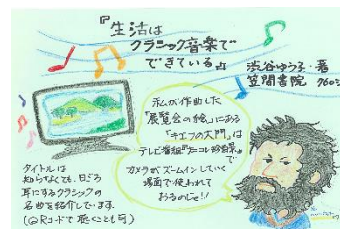 『生活は
クラシック音楽で
できている』
渋谷ゆう子・著
笠間書院
私が作曲した
「展覧会の絵」にある
「キエフの大門」は
で
カメラがズームインしていく
場面で使われて
おるのじゃ!!
タイトルは
知らなくても、日ごろ
耳にするクラシックの
名曲を紹介しています。
(QRコードで聴くことも可)